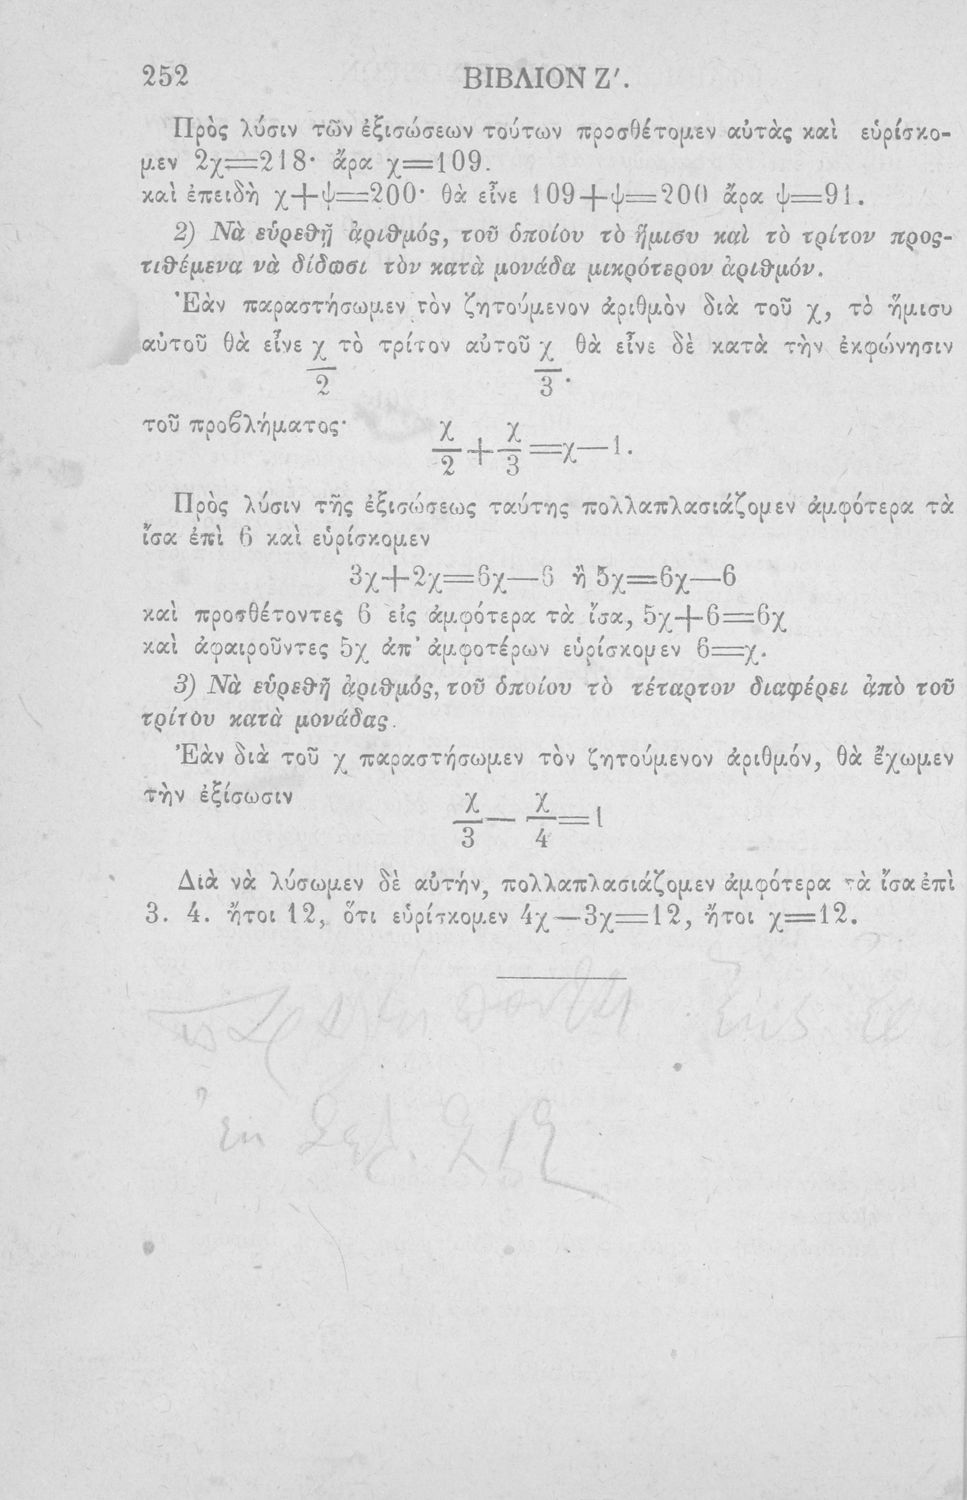 252 ΒΙΒΛΙΟΝ Ζʹ.
Πρὸς λύσιν τῶν ἐξισώσεων τούτων προσθέτομεν αὐτὰς καὶ εὑρίσκο-
μεν 2χ=218· ἄρα χ=109.
καὶ ἐπειδὴ χ+ψ=200· θὰ εἶνε 109+ψ=200 ἄρα ψ=91.
2) Νὰ εὑρεθῇ ἀριθμός, τοῦ ὁποίου τὸ ἥμισυ καὶ τὸ τρίτον προς-
τιθέμενα νὰ δίδωσι τὸν κατὰ μονάδα μικρότερον ἀριθμόν.
Ἐὰν παραστήσωμεν τὸν ζητούμενον ἀριθμὸν διὰ τοῦ χ, τὸ ἥμισυ
αὐτοῦ θὰ εἶνε χ/2 τὸ τρίτον αὐτοῦ χ/3· θὰ εἶνε δὲ κατὰ τὴν ἐκφώνησιν
τοῦ προβλήματος· χ/2+χ/3=χ—1.
Πρὸς λύσιν τῆς ἐξισώσεως ταύτης πολλαπλασιάζομεν ἀμφότερα τὰ
ἴσα ἐπὶ 6 καὶ εὑρίσκομεν
3χ+2χ=6χ—6 ἢ 5χ=6χ—6
καὶ προσθέτοντες 6 εἰς ἀμφότερα τὰ ἴσα, 5χ+6=6χ
καὶ ἀφαιροῦντες 5χ ἀπ' ἀμφοτέρων εὑρίσκομεν 6=χ.
3) Νὰ εὑρεθῇ ἀριθμός, τοῦ ὁποίου τὸ τέταρτον διαφέρει ἀπὸ τοῦ
τρίτου κατὰ μονάδας.
Ἐὰν διὰ τοῦ χ παραστήσωμεν τὸν ζητούμενον ἀριθμόν, θὰ ἔχωμεν
τὴν ἐξίσωσιν χ/3—χ/4=1
Διὰ νὰ λύσωμεν δὲ αὐτήν, πολλαπλασιάζομεν ἀμφότερα τὰ ἴσα ἐπὶ
3. 4. ἤτοι 12, ὅτι εὑρίσκομεν 4χ—3χ=12, ἤτοι χ=12.